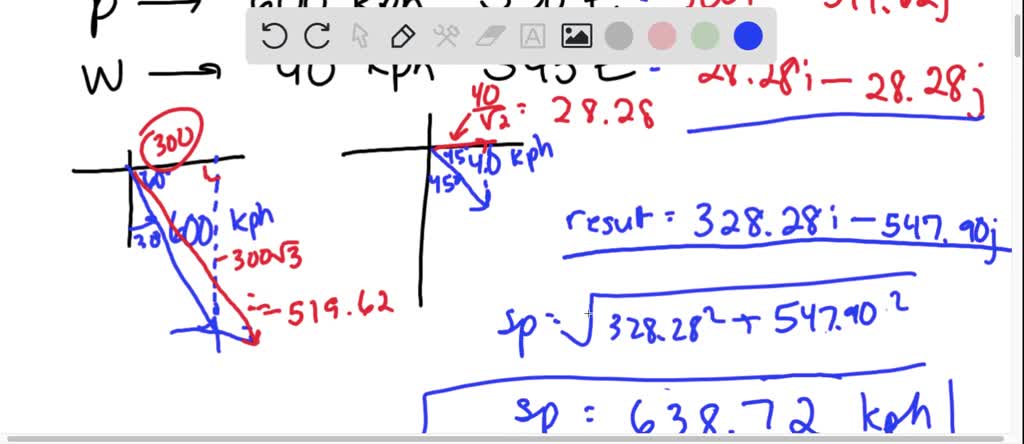 p → 600 kph S30E = 300i - 519.62j
W → 40 kph S45E = 28.28i - 28.28j
40/√2 = 28.28
300
60°
30
600 kph
-300√3
≈ -519.62
45° 40 kph
45°
result = 328.28i - 547.90j
sp = √328.28² + 547.90²
sp = 638.72 kph
A